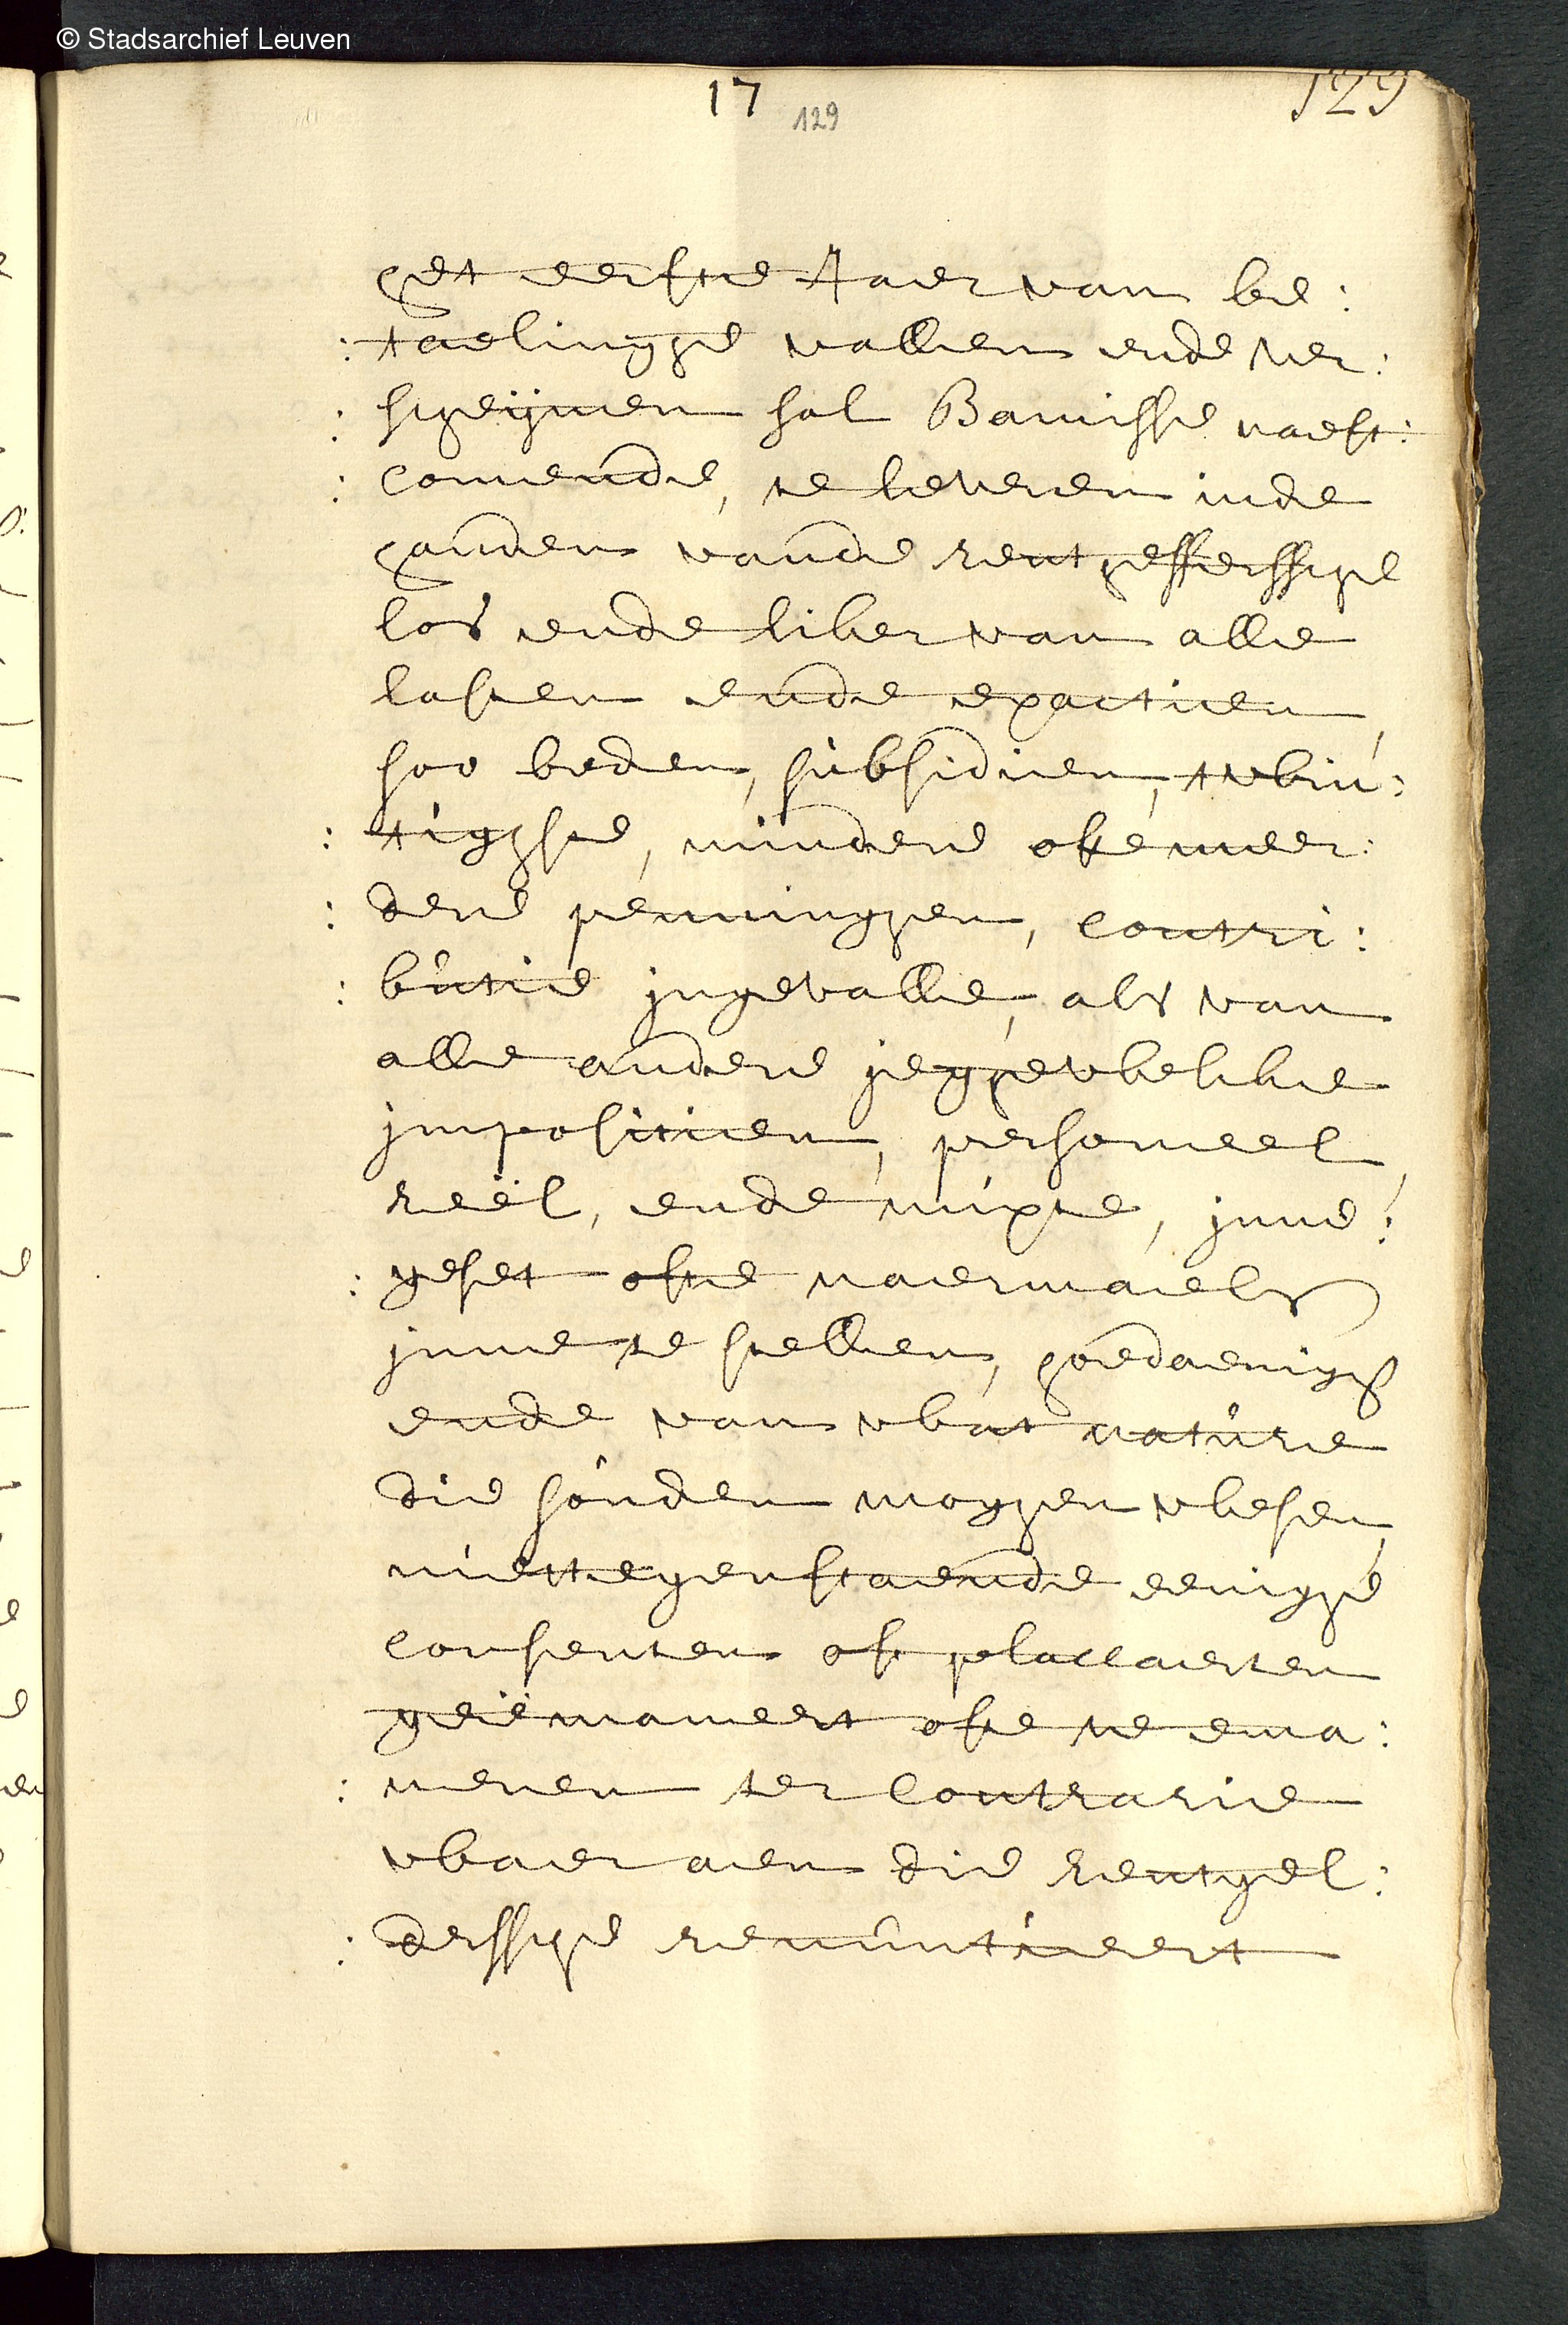 © Stadsarchief Leuven
17
129
129
het eerste Jaer van be:
: taelinghe vallen ende ver:
: scheijnen sal Bamisse naest:
: comende, te leveren inde
handen vande rentheffersche
los ende liber van alle
lasten ende exactien,
soo beden, subsidien, twin:
: tichste, mindere ofte meer:
: dere penninghen, contri:
: butie ingevalle, als van
alle andere jeghewelcke
impositien, personeel,
reël, ende mixte, inne:
: geset ofte naermaels
inne te stellen, hoedaenigh
ende van wat nature
die souden moghen wesen,
niettegenstaende eenighe
consenten oft placcaerten
geëmaneert ofte te ema:
: neren ter contrarie
waer aen die rentgel:
: dersche renuntieert